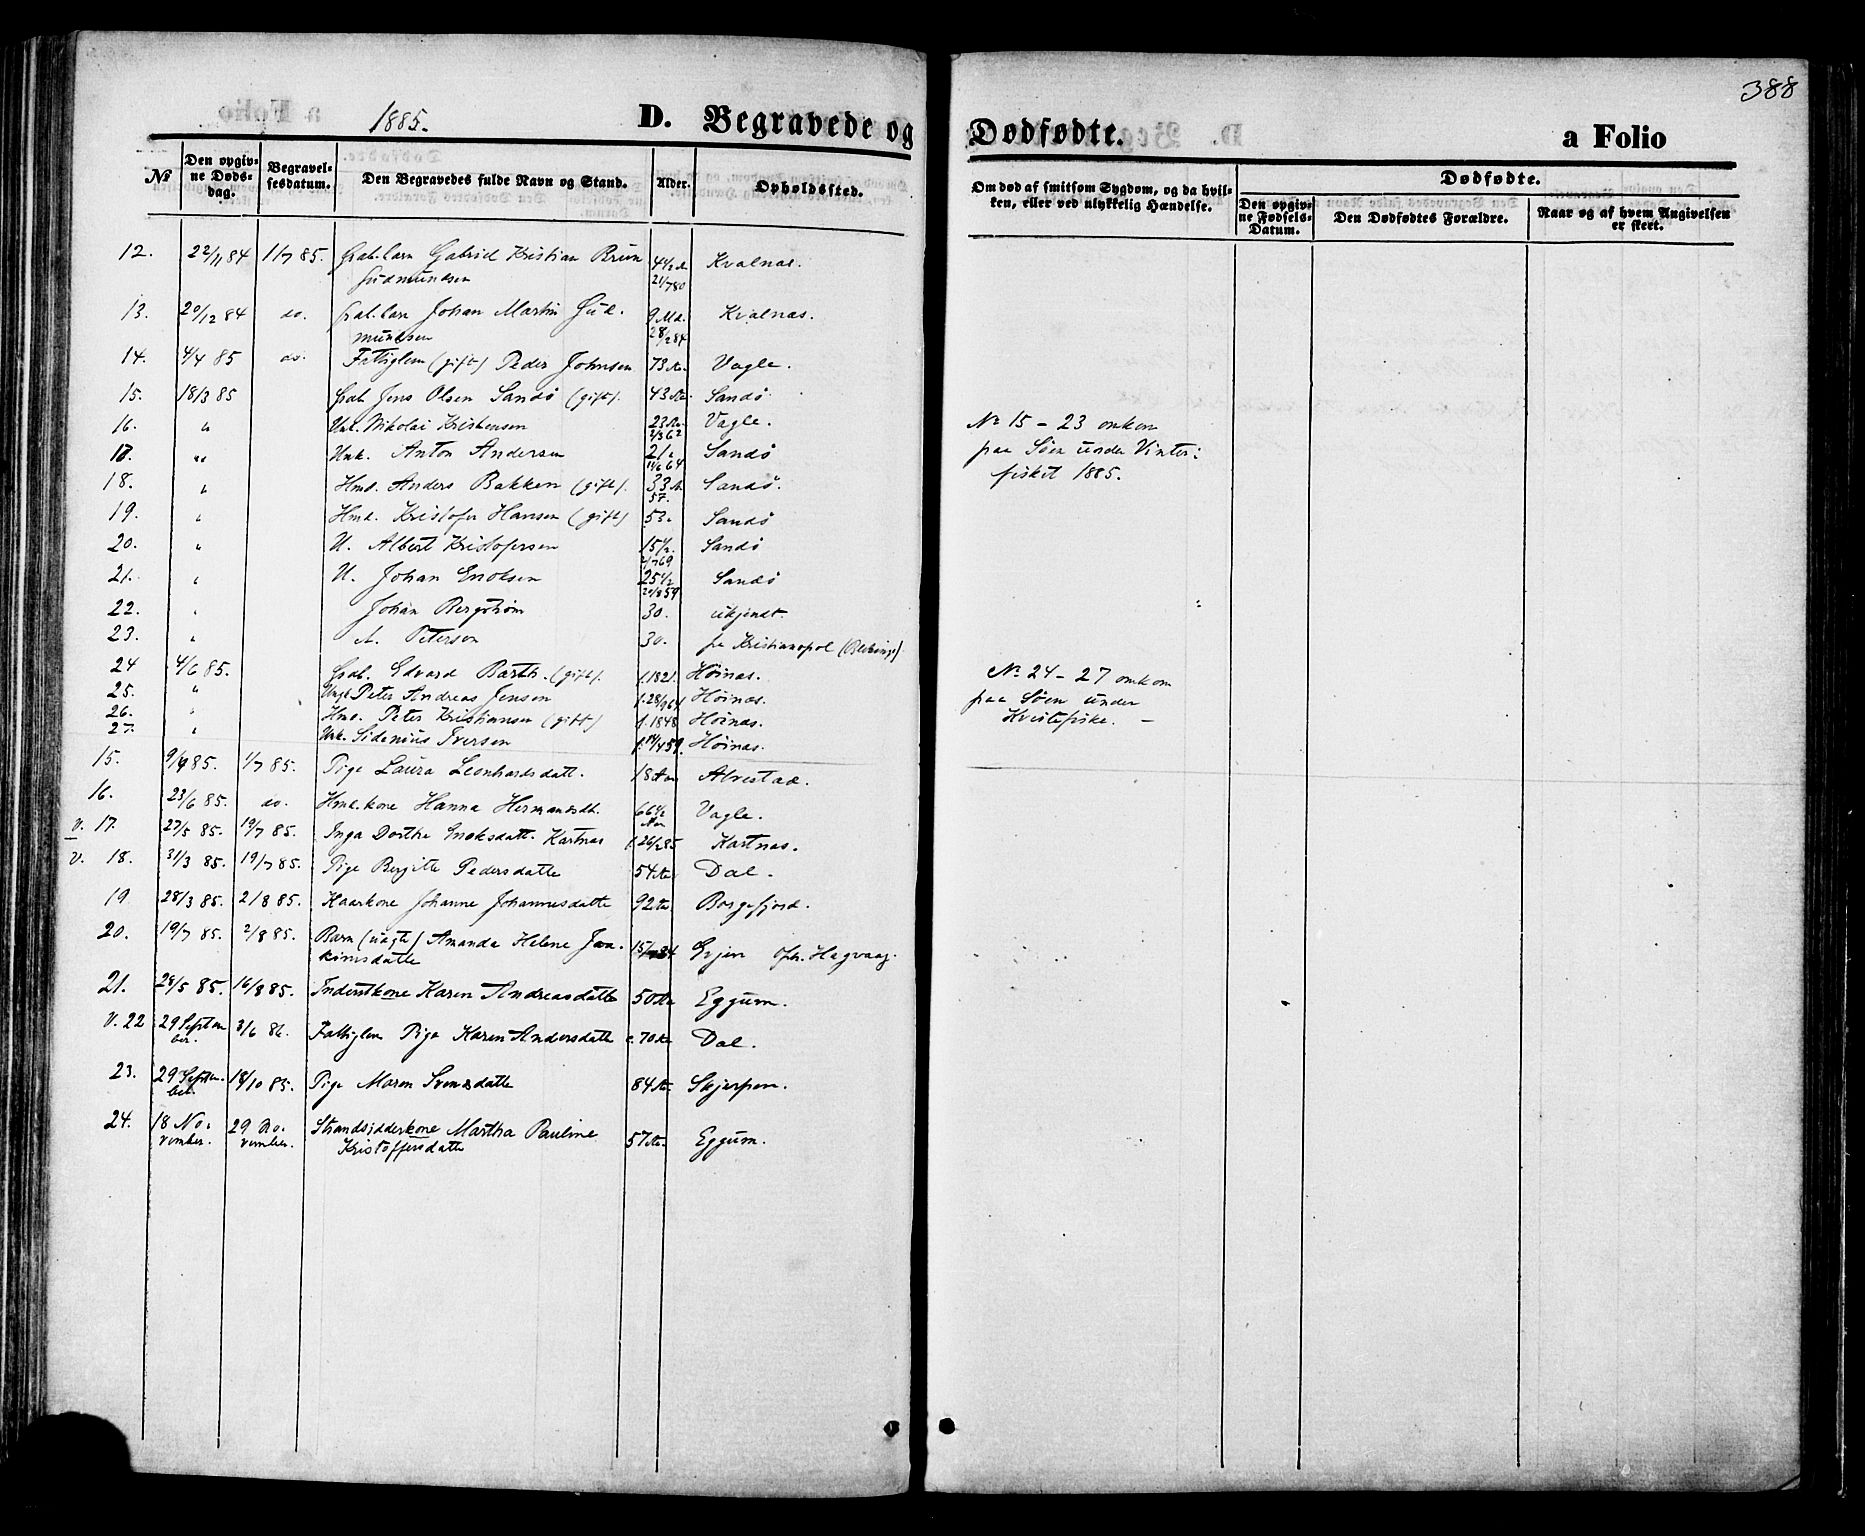 388
1885.
D. Begravede og Dødfødte.
a Folio
№
Den opgivne Dødsdag.
Begravelsesdatum.
Den Begravedes fulde Navn og Stand.
Alder.
Opholdssted.
Om død af smitsom Sygdom, og da hvilken, eller ved ulykkelig Hændelse.
Dødfødte.
Den opgivne Fødsels-Datum.
Den Dødfødtes Forældre.
Naar og af hvem Angivelsen er skeet.
12. 22/11 84 1/7 85. Gabriel Kristian Brun Gudmundsen 4 1/2 A 21/7 80 Kvalnæs.
13. 20/12 84 do. Johan Martin Gudmundsen 9 Md. 28/2 84 Kvalnæs.
14. 4/4 85 do. Fattiglem (gift) Peder Johnsen 73 Aar Vagle.
15. 18/3 85 Jens Olsen Sandö (gift). 43 Aar Sandö.
16. " Unk. Nikolai Kristensen 23 Aar 2/3 62 Vagle.
17. " Unk. Anton Andersen 21 11/6 64 Sandö
18. " Hmd. Anders Bakken (gift). 33 A 57. Sandö.
19. " Hmd. Kristofer Hansen (gift) 53. Sandö
20. " U. Albert Kristofersen 15 1/2. 2/7 69 Sandö
21. " U. Johan Enoksen 25 1/2 20/8 59 Sandö
22. " Johan Bergstrøm 30. ukjendt.
23. " A. Peterson 30. fra Kristianopol (Blekinge)
№ 15 - 23 omkom
paa Søen under Vinter:
fisket 1885.
24 4/6 85. Edvard Barth. (gift). f. 1821. Höinæs.
25. " Ungk. Peter Andreas Jensen f. 28/9 64 Höinæs.
26. " Hmd. Peter Kristiansen (gift) f. 1848 Höinæs.
27. " Unk. Sidenius Iversen f. 14/4 59. Höinæs.
№ 24 - 27 omkom
paa Søen under
15. 9/4 85. 1/7 85. Pige Laura Leonhardsdatt. 18 Aar Alvestad.
16. 23/6 85. do. Hmd.kone Hanna Hermansdt. 66 1/2 Aar Vagle.
v. 17. 27/5 85. 19/7 85. Inga Dorthea Enoksdatt. Kartnæs f. 26/2 85 Kartnæs.
v. 18. 31/3 85. 19/7 85. Pige Bergitte Pedersdatte 54 Aar Dal.
19. 28/3 85. 2/8 85. Kaarkone Johanne Johannesdatte 92 Aar Borgefjord.
20. 19/7 85. 2/8 85. Barn (uægte) Amanda Helene Joakimsdatte Oph. Hagvaag.
21. 28/5 85. 16/8 85. Inderstkone Karen Andreasdatte 50 Aar Eggum.
v. 22 29 September. 3/6 86. Fattiglem Pige Karen Andersdatte c. 70 Aar Dal.
23. 29 September. 18/10 85. Pige Maren Svensdatte 84 Aar Skjerpen.
24. 18 November. 29 November. Strandsidderkone Martha Pauline Kristoffersdatte 57 Aar. Eggum.